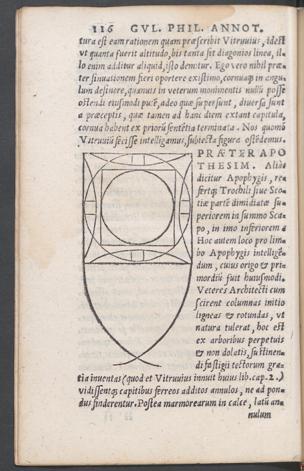 116 GVL. PHIL. ANNOT.
tura est eam rationem quam præscribit Vitruuius, idest
vt quanta fuerit altitudo, bis tanta sit diagonios linea, il-
lo enim additur aliquid, isto demitur. Ego vero nihil præ
ter sinuationem fieri oportere existimo, cornuaq; in angu
lum desinere, quamuis in veterum monimentis nullũ posse
ostendi eiusmodi putẽ, adeo quæ supersunt, diuersa sunt
a præceptis, quæ tamen ad hanc diem extant capitula,
cornua habent ex priorũ sententia terminata. Nos quomõ
Vitruuiũ fecisse intelligamus, subiecta figura ostẽdemus.
PRÆTER APO
THESIM. Aliàs
dicitur Apophygis, re-
fertq; Trochili siue Sco-
tiæ partẽ dimidiatæ su-
periorem in summo Sca-
po, in imo inferiorem
Hoc autem loco pro lim-
bo Apophygis intelligẽ-
dum, cuius origo & pri-
mordiũ fuit huiusmodi.
Veteres Architecti cum
scirent columnas initio
ligneas & rotundas, vt
natura tulerat, hoc est
ex arboribus perpetuis
& non dolatis, sustinen-
di fastigii tectorum gra-
tia inuentas (quod et Vitruuius innuit huius lib. cap. 2.)
vidissentq; capitibus ferreos additos annulos, ne ad pon-
dus finderentur. Postea marmorearum in calce, latũ an-
nulum